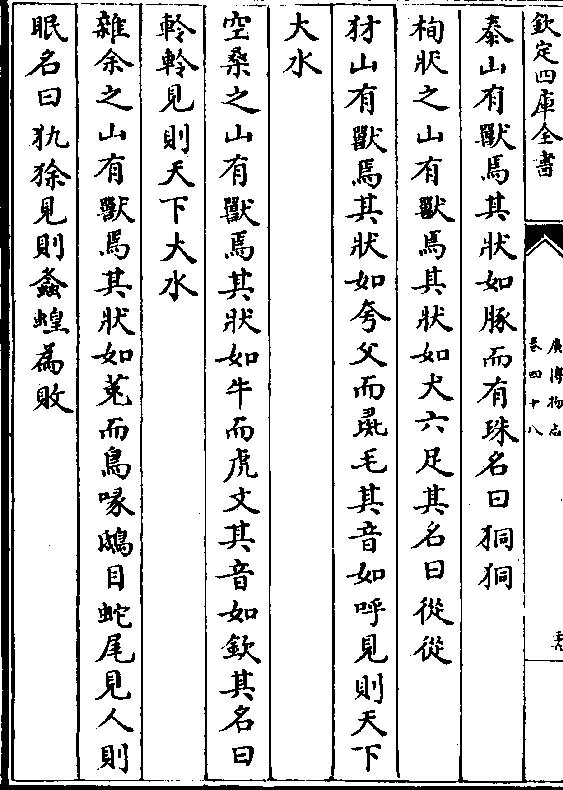 欽定四庫全書
廣博物志
卷四十八
泰山有獸焉其狀如豚而有珠名曰狪狪
栒狀之山有獸焉其狀如犬六足其名曰從從
犲山有獸焉其狀如夸父而彘毛其音如呼見則天下
大水
空桑之山有獸焉其狀如牛而虎文其音如欽其名曰
軨軨見則天下大水
雜余之山有獸焉其狀如菟而鳥喙鴟目蛇尾見人則
眠名曰犰狳見則螽蝗為敗